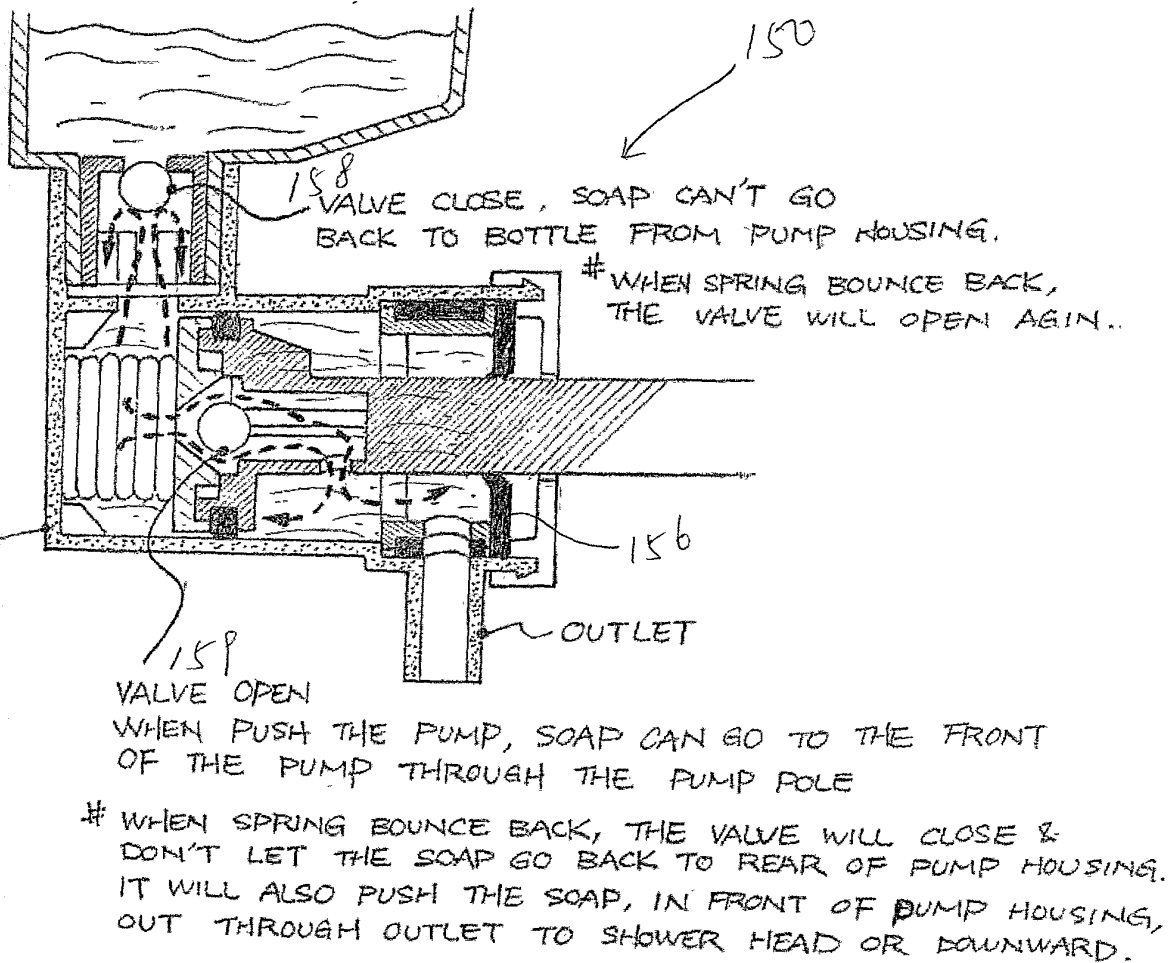 150
158
VALVE CLOSE. SOAP CAN'T GO
BACK TO BOTTLE FROM PUMP HOUSING.
# WHEN SPRING BOUNCE BACK,
THE VALVE WILL OPEN AGIN..
156
OUTLET
159
VALVE OPEN
WHEN PUSH THE PUMP, SOAP CAN GO TO THE FRONT
OF THE PUMP THROUGH THE PUMP POLE
# WHEN SPRING BOUNCE BACK, THE VALVE WILL CLOSE &
DON'T LET THE SOAP GO BACK TO REAR OF PUMP HOUSING.
IT WILL ALSO PUSH THE SOAP, IN FRONT OF PUMP HOUSING,
OUT THROUGH OUTLET TO SHOWER HEAD OR DOWNWARD.